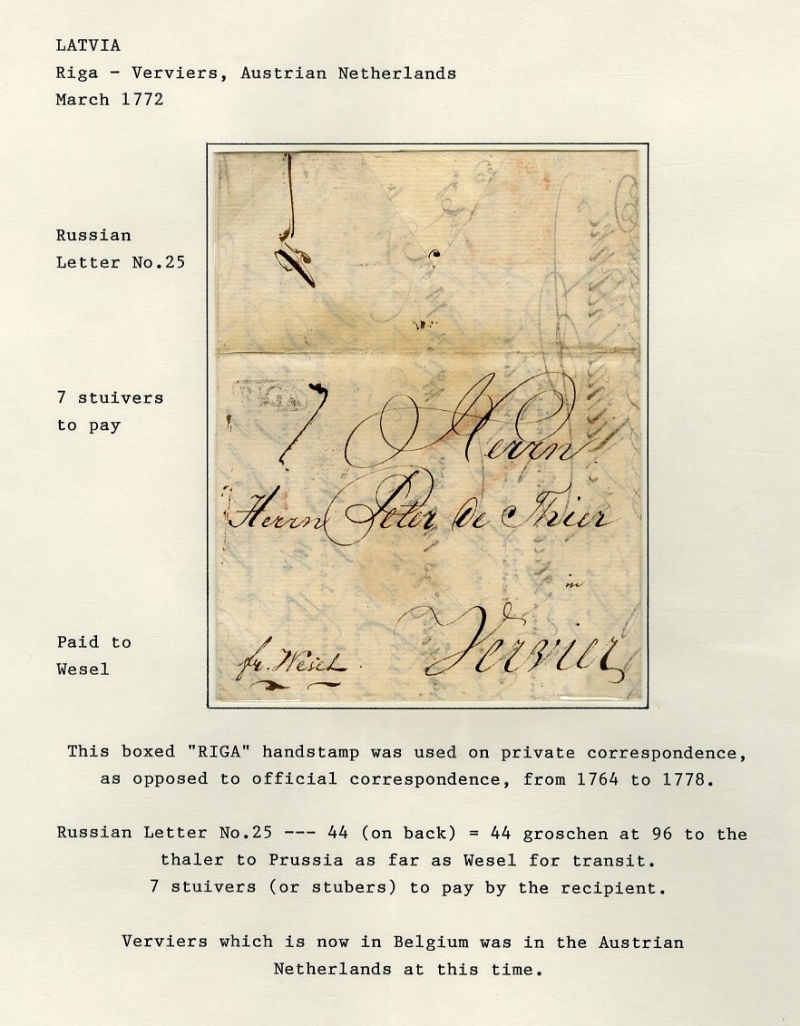 LATVIA
Riga - Verviers, Austrian Netherlands
March 1772
Russian
Letter No.25
7 stuivers
to pay
RIGA
7 Herrn
Herrn Peter de Thier
in
Vervier
fr. Wesel
Paid to
Wesel
This boxed "RIGA" handstamp was used on private correspondence,
as opposed to official correspondence, from 1764 to 1778.
Russian Letter No.25 --- 44 (on back) = 44 groschen at 96 to the
thaler to Prussia as far as Wesel for transit.
7 stuivers (or stubers) to pay by the recipient.
Verviers which is now in Belgium was in the Austrian
Netherlands at this time.